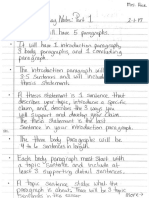 Mrs.
Essay Notes: Part 1
2-5-19
It will have 5 paragraphs.
It will have 1 introduction paragraph,
3 body paragraphs, and 1 concluding
paragraph.
The introduction paragraph will be
2-5 sentences and will include
thesis statement.
A thesis statement is 1 sentence
that describes your topic, introduce a specific
claim, and describes the 3 ways
you will support and develop your claim.
The thesis statement is the last
sentence in your introduction paragraph.
Each body paragraph will be
4 to 6 sentences in length.
Each body paragraph must start with
a topic sentence and include at
least 3 supporting detail sentences.
A topic sentence states what the
paragraph is about. It should be